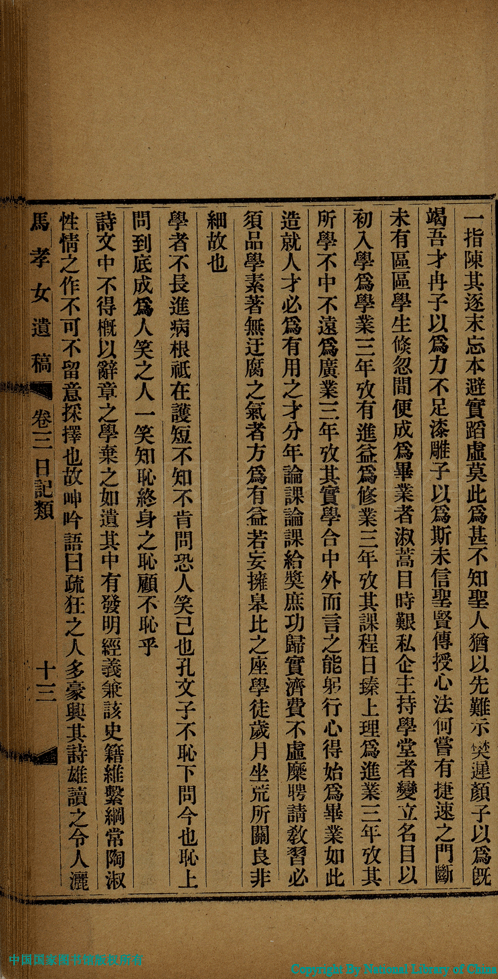 一指陳其逐末忘本避實蹈虛莫此爲甚不知聖人猶以先難示樊遲顏子以爲既
竭吾才冉子以爲力不足漆雕子以爲斯未信聖賢傳授心法何嘗有捷速之門斷
未有區區學生倐忽間便成爲畢業者淑蒿目時艱私企主持學堂者變立名目以
初入學爲學業三年攷有進益爲修業三年攷其課程日臻上理爲進業三年攷其
所學不中不遠爲廣業三年攷其實學合中外而言之能躬行心得始爲畢業如此
造就人才必爲有用之才分年論課論課給獎庶功歸實濟費不虛糜聘請敎習必
須品學素著無迂腐之氣者方爲有益若妄擁臯比之座學徒歲月坐荒所關良非
細故也
學者不長進病根祗在護短不知不肯問恐人笑己也孔文子不恥下問今也恥上
問到底成爲人笑之人一笑知恥終身之恥顧不恥乎
詩文中不得槪以辭章之學棄之如遺其中有發明經義兼該史籍維繫綱常陶淑
性情之作不可不留意採擇也故呻吟語曰疏狂之人多豪興其詩雄讀之令人灑
馬孝女遺稿 卷三日記類 十三
中国国家图书馆版权所有
Copyright By National Library of China